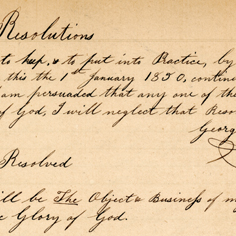 Resolutions
to keep, & to put into Practice, by
this the 1st January 1850, contin
am persuaded that any one of th
of God, I will neglect that Reso
Georg
Resolved
ill be The Object & Business of m
e Glory of God.